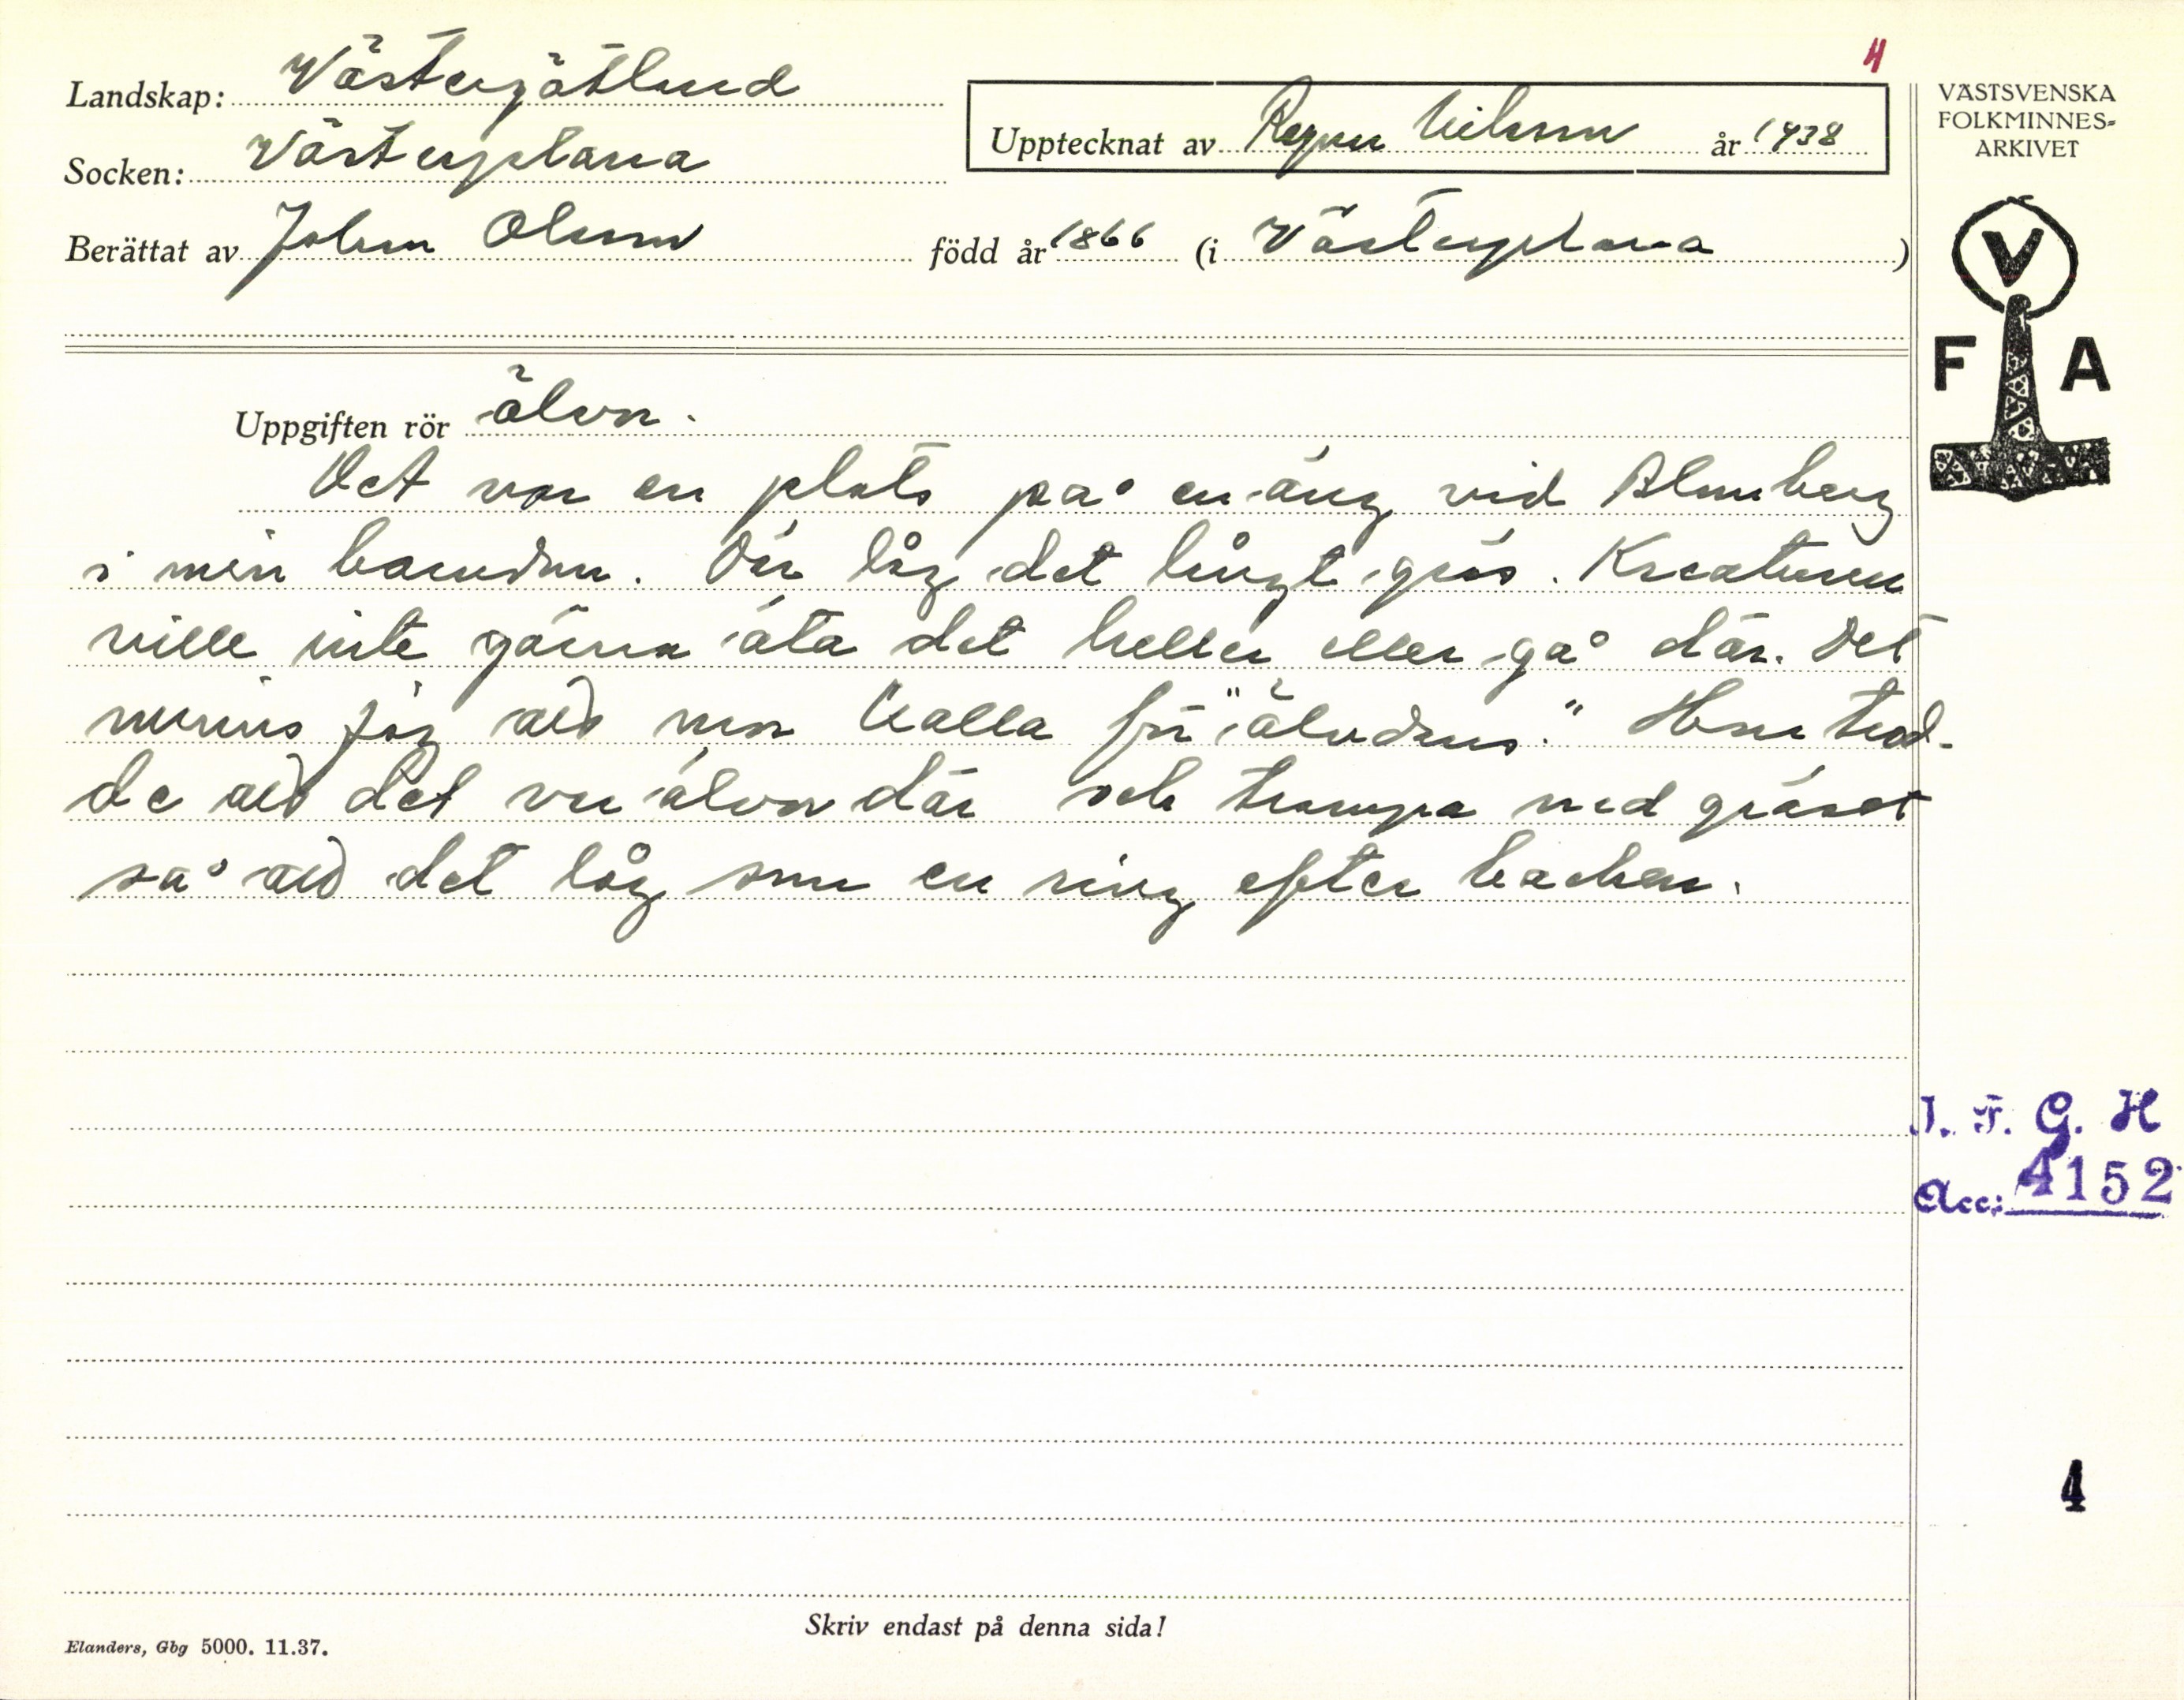 4
Landskap: Västergötland
Upptecknat av Ragnar Nilsson år 1938
VÄSTSVENSKA
FOLKMINNES-
ARKIVET
Socken: Västerplana
Berättat av Johan Olsson född år 1866 (i Västerplana)
V
F A
Uppgiften rör älvor.
Det var en plats på en äng vid Blomberg
i min barndom. Där låg det långt gräs. Kreaturen
ville inte gärna äta det heller eller gå där. Det
minns jag att mor kalla för "älvdans." Hon trod-
de att det var älvor där och trampa ned gräset
så att det låg som en ring efter backen.
I. F. G. H
Acc: 4152
4
Skriv endast på denna sida!
Elanders, Gbg 5000. 11.37.